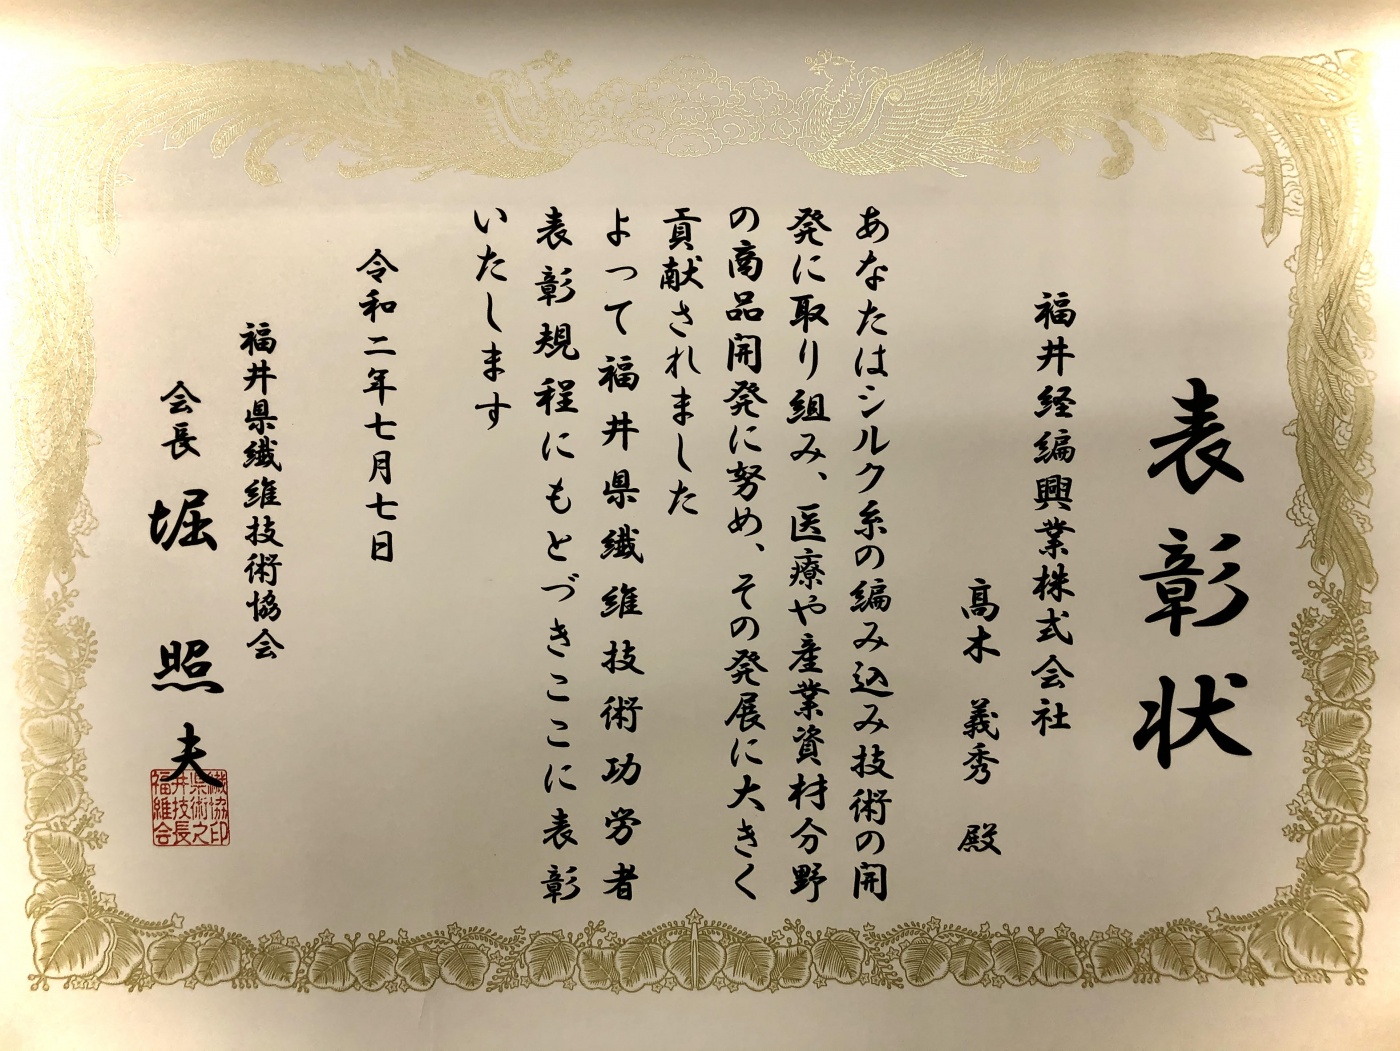 表彰状
福井経編興業株式会社
髙木 義秀 殿
あなたはシルク糸の編み込み技術の開
発に取り組み、医療や産業資材分野
の商品開発に努め、その発展に大きく
貢献されました
よって福井県繊維技術功労者
表彰規程にもとづきここに表彰
いたします
令和二年七月七日
福井県繊維技術協会
会長 堀 照夫
繊協印
県術之
井技長
福維会